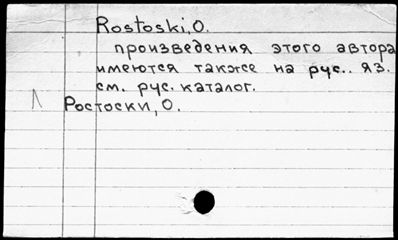 Rostoski, O.
произведения этого автора
имеются также на рус.. яз.
см. рус. каталог.
Ростоски, О.